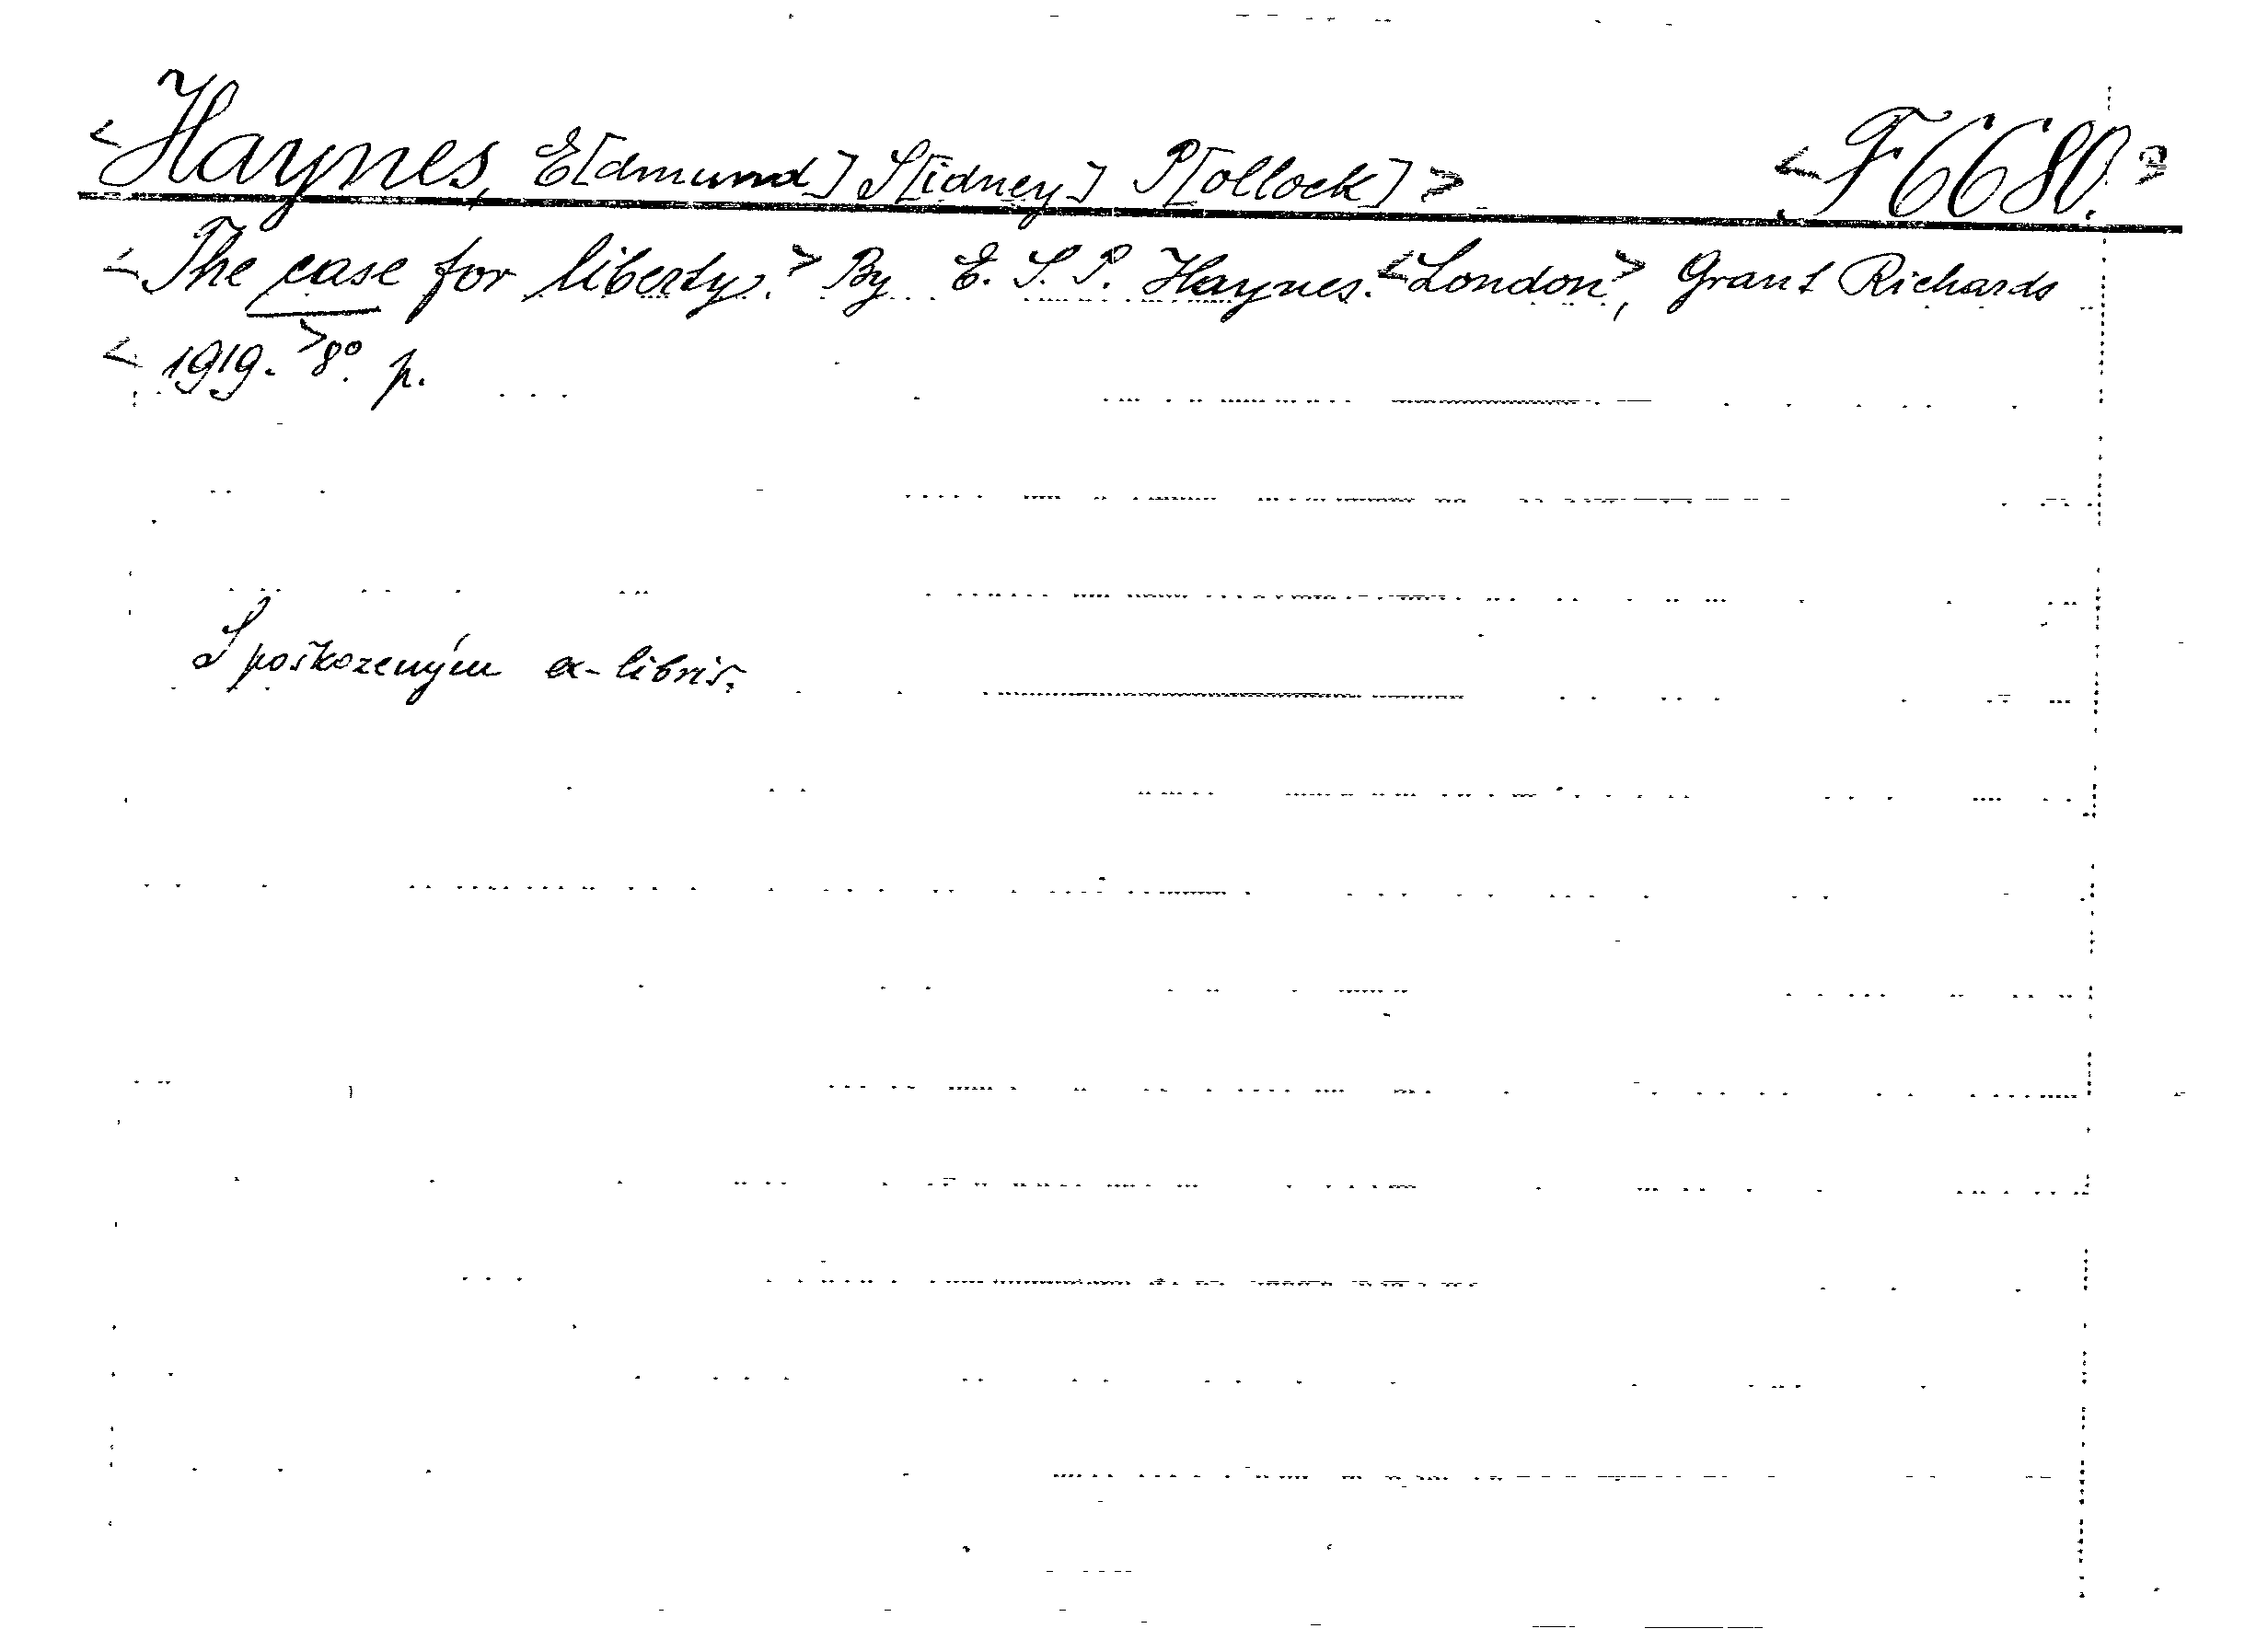 <Haynes, E[dmund] S[idney] P[ollock]> <F 6680.>
<The case for liberty.> By E. S. P. Haynes. <London>, Grant Richards
<1919.> 8°. p.
S poškozeným ex-libris.